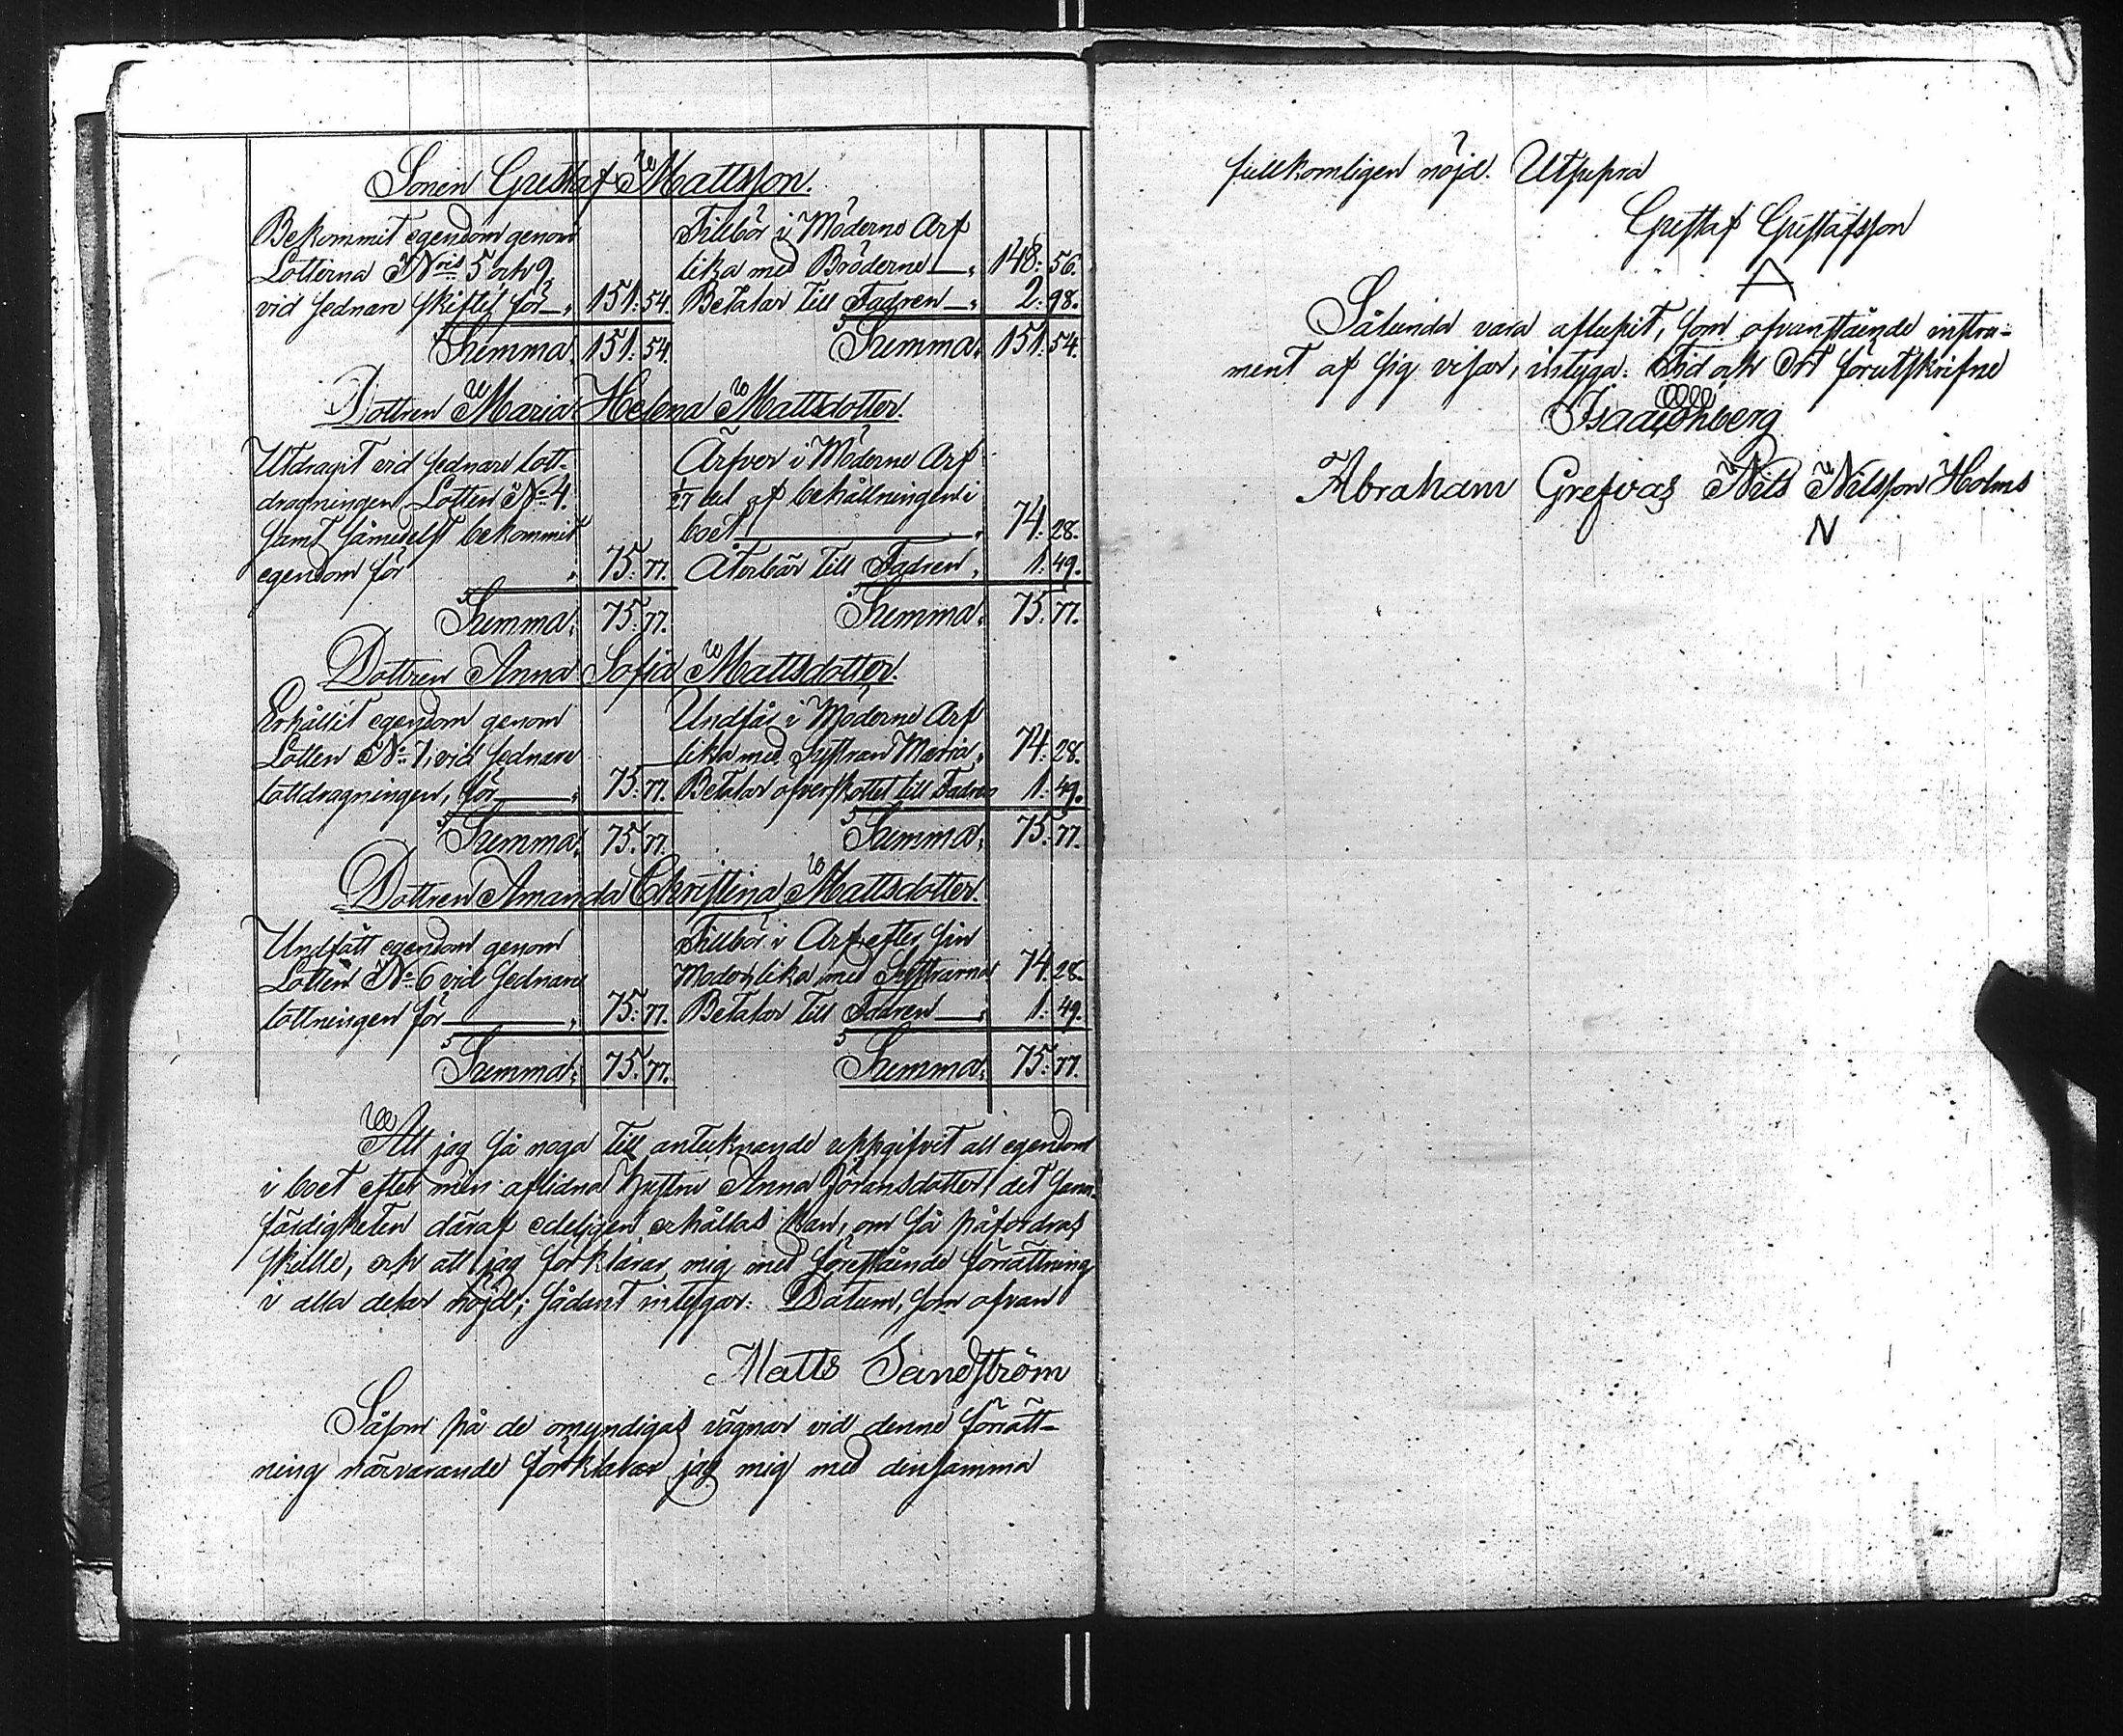 Sonen Gustaf Mattsson.
Bekommit egendom genom
Lotterna N:ris 5 och 9
vid sednare skiftet för — „ 151: 54.
Summa, 151: 54.
Tillbör i Möderne Arf
lika med Bröderne — „ 148: 56.
Betalar till Fadren — „ 2: 98.
Summa, 151: 54.
Dottren Maria Helena Mattsdotter.
Utdragit vid sednare lott-
dragningen Lotten N:o 4.
samt såmedelst bekommit
egendom för „ 75: 77.
Summa, 75: 77.
Ärfver i Möderne Arf
1/27 del af behållningen i
boet — „ 74: 28.
Återbär till Fadren „ 1: 49.
Summa, 75: 77.
Dottren Anna Sofia Mattsdotter.
Erhållit egendom genom
Lotten N:o 7, vid sednare
lottdragningen, för — „ 75: 77.
Summa, 75: 77.
Undfår i Möderne Arf
lika med Systran Maria „ 74: 28.
Betalar öfverskottet till Fadren 1: 49.
Summa, 75: 77.
Dottren Amanda Christina Mattsdotter.
Undfått egendom genom
Lotten N:o 6 vid sednare
lottningen för — „ 75: 77.
Summa, 75: 77.
Tillbör i Arf efter sin
Moder, lika med Systrarna 74: 28.
Betalar till Fadren — „ 1: 49.
Summa, 75: 77.
Att jag så noga till antecknande uppgifvit all egendom
i boet efter min aflidna hustru Anna Göransdotter, det sann-
färdigheten däraf edeligen erhållas kan, om så påfordras
skulle, och att jag förklarar mig med förestående förrättning
i alla delar nöjd; sådant intygar: Datum, som ofvan
Matts Sandström
Såsom på de omyndigas vägnar vid denne förrätt-
ning närvarande förklarar jag mig med densamma
fullkomligen nöjd. Utsupra
Gustaf Gustafsson
A
Sålunda vara aflupit, som ofvanstående instru-
ment af sig visar, intyga. Tid och Ort förutskrifne
Isac Öhberg
Abraham Grefvas Nils Nilsson Holms
N